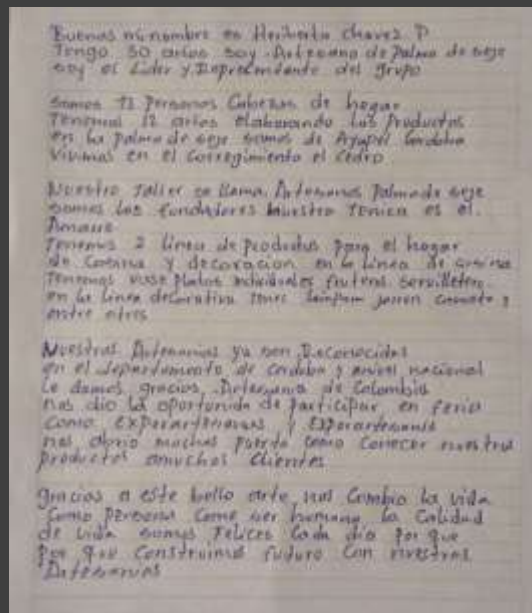 Buenas mi nombre es Heriberto Chavez P
Tengo 50 años soy Artesano de Palma de seje
soy el Lider y Representante del grupo
somos 12 Personas Cabezas de hogar
Tenemos 12 años elaborando los Productos
en la palma de seje somos de Ayapel Cordoba
vivimos en el Corregimiento el Cedro
Nuestro Taller se llama Artesanos Palma de seje
somos los fundadores Nuestro Tecnica es el
Amarre
Tenemos 2 linea de productos para el hogar
de Cocina y decoracion en la Linea de cocina
Tenemos platos individuales fruteros servilletero
en la Linea decorativa jarron y
entre otros
Nuestras Artesanias ya son Reconocidas
en el departamento de Cordoba y anivel nacional
Le damos gracias Artesania de Colombia
nos dio la oportunida de Participar en feria
como Expoartesanias y Expoartesania
nos abrio muchas puerta como conocer nuestros
productos amuchos Clientes
gracias a este bello arte nos Cambio la vida
como persona como ser humano la Calidad
de vida somos Felices Cada dia Por que
Por que Construimos futuro con nuestras
Artesanias